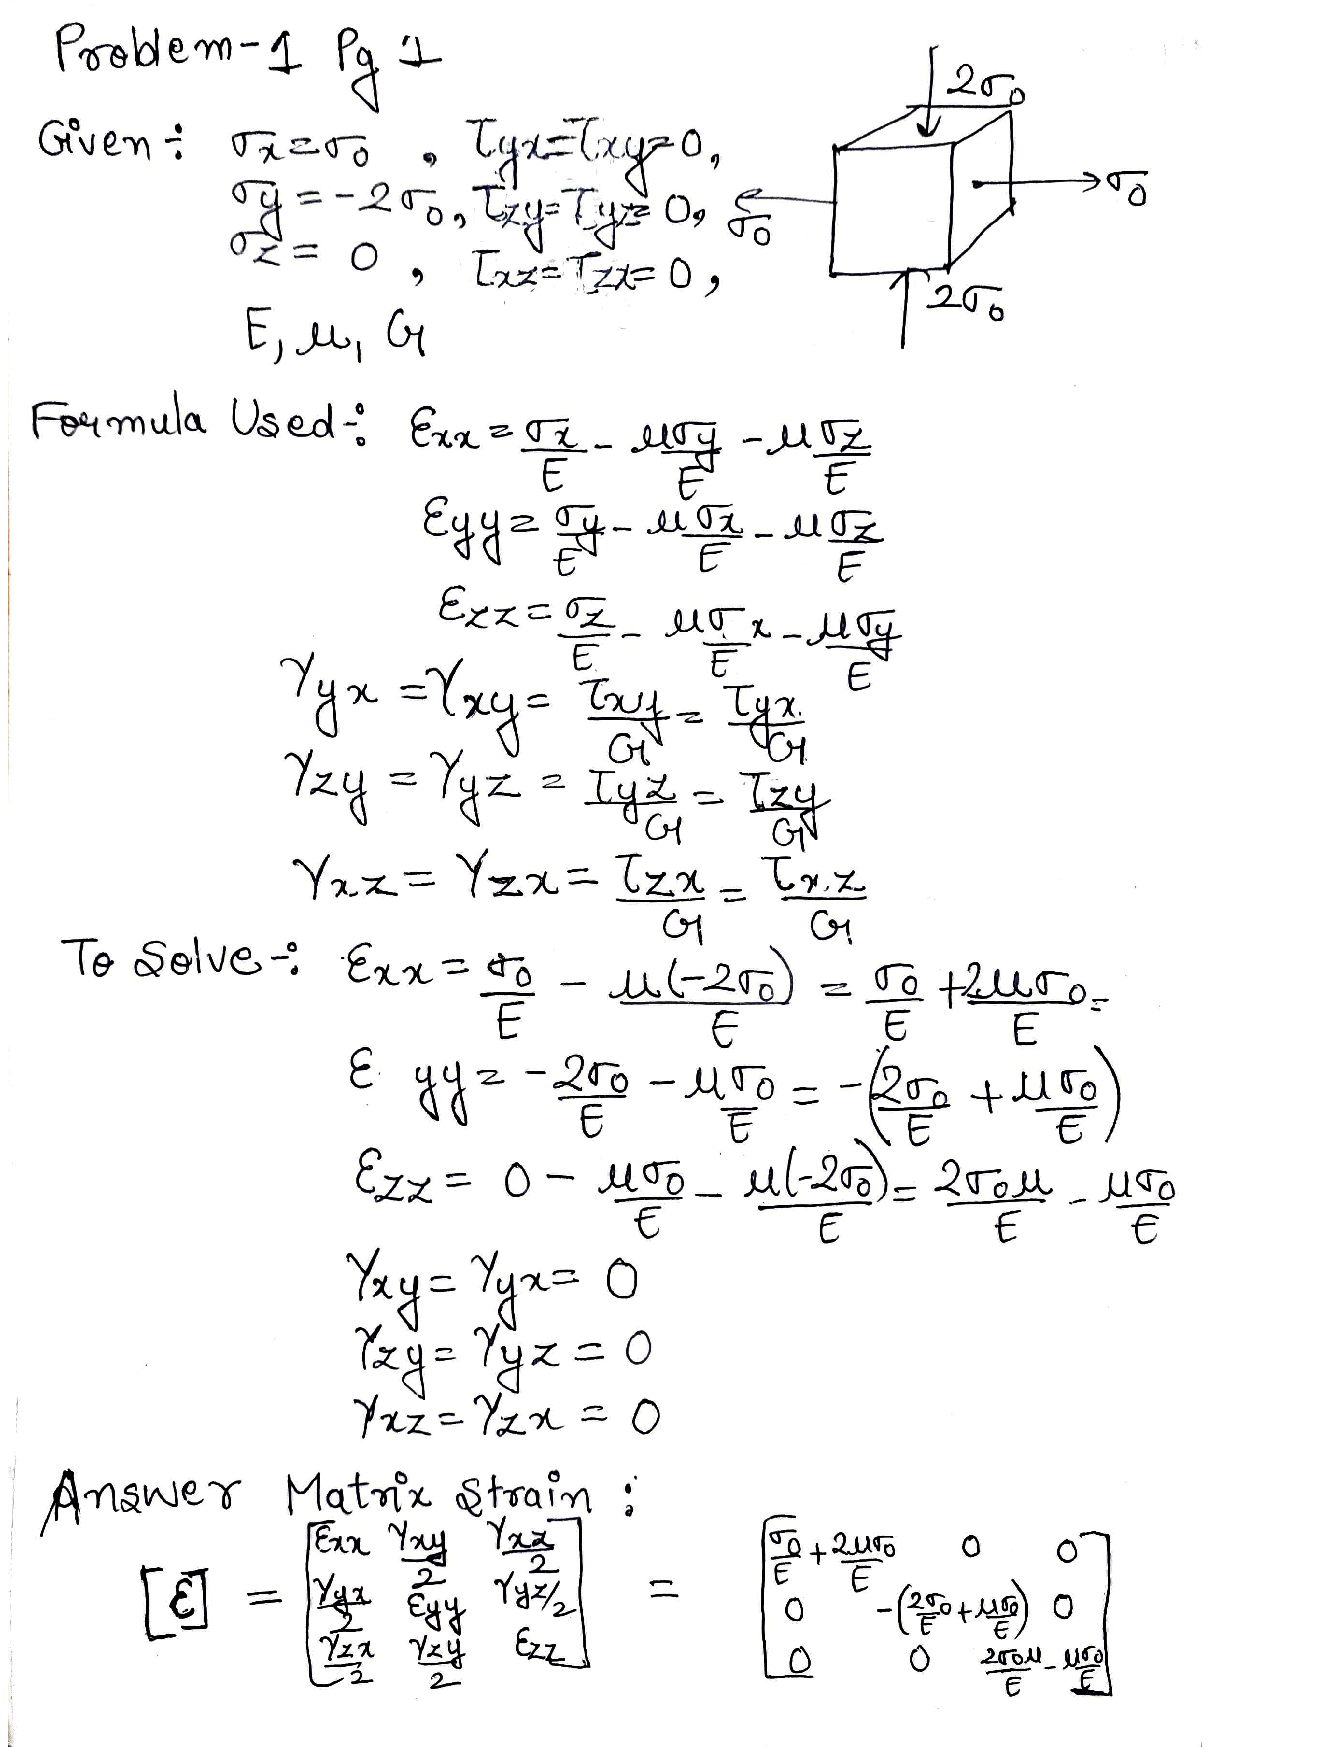 Problem-1 Pg 1
2σ0
Given : σx = σ0 , τyx = τxy = 0,
σy = -2σ0, τzy = τyz = 0,
σ0
σ0
σz = 0 , τxz = τzx = 0,
2σ0
E, μ, G
Formula Used : Exx = σx/E - μσy/E - μσz/E
Eyy = σy/E - μσx/E - μσz/E
Ezz = σz/E - μσx/E - μσy/E
γyx = γxy = τxy/G = τyx/G
γzy = γyz = τyz/G = τzy/G
γxz = γzx = τzx/G = τxz/G
To Solve : Exx = σ0/E - μ(-2σ0)/E = σ0/E + 2μσ0/E =
Eyy = -2σ0/E - μσ0/E = -(2σ0/E + μσ0/E)
Ezz = 0 - μσ0/E - μ(-2σ0)/E = 2σ0μ/E - μσ0/E
γxy = γyx = 0
γzy = γyz = 0
γxz = γzx = 0
Answer Matrix Strain :
[Exx γxy/2 γxz/2] [σ0/E + 2μσ0/E 0 0]
[E] = [γyx/2 Eyy γyz/2] = [0 -(2σ0/E + μσ0/E) 0]
[γzx/2 γzy/2 Ezz] [0 0 2σ0μ/E - μσ0/E]